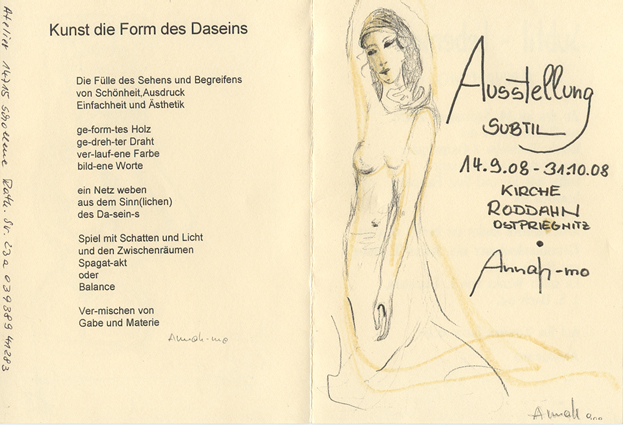 Kunst die Form des Daseins
Die Fülle des Sehens und Begreifens
von Schönheit,Ausdruck
Einfachheit und Ästhetik
ge-form-tes Holz
ge-dreh-ter Draht
ver-lauf-ene Farbe
bild-ene Worte
ein Netz weben
aus dem Sinn(lichen)
des Da-sein-s
Spiel mit Schatten und Licht
und den Zwischenräumen
Spagat-akt
oder
Balance
Ver-mischen von
Gabe und Materie
Annah-mo
Atelier 14715 Schollene Str. 23a 039389 41283
Ausstellung
SUBTIL
14.9.08-31.10.08
KIRCHE
RODDAHN
OSTPRIEGNITZ
Annah-mo
Annah